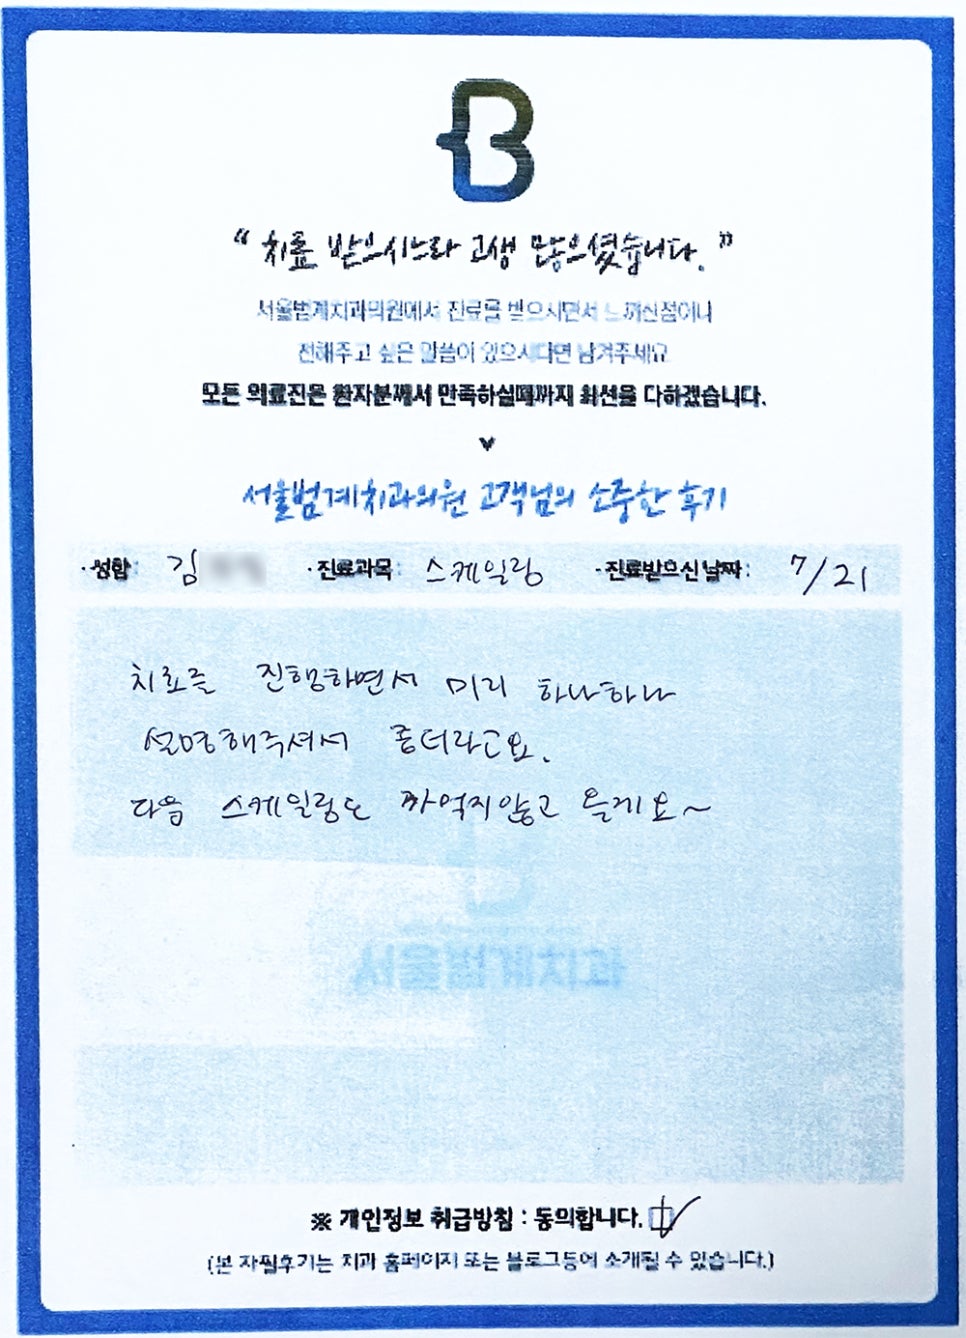 B
“ 치료 받으시느라 고생 많으셨습니다. ”
서울범계치과의원에서 진료를 받으시면서 느끼신점이나
전해주고 싶은 말씀이 있으시다면 남겨주세요
모든 의료진은 환자분께서 만족하실때까지 최선을 다하겠습니다.
서울범계치과의원 고객님의 소중한 후기
· 성함: 김 · 진료과목: 스케일링 · 진료받으신 날짜: 7/21
치료를 진행하면서 미리 하나하나
설명해주셔서 좋더라고요.
다음 스케일링도 까먹지않고 올게요~
서울범계치과
※ 개인정보 취급방침 : 동의합니다.
(본 자필후기는 치과 홈페이지 또는 블로그등에 소개될 수 있습니다.)